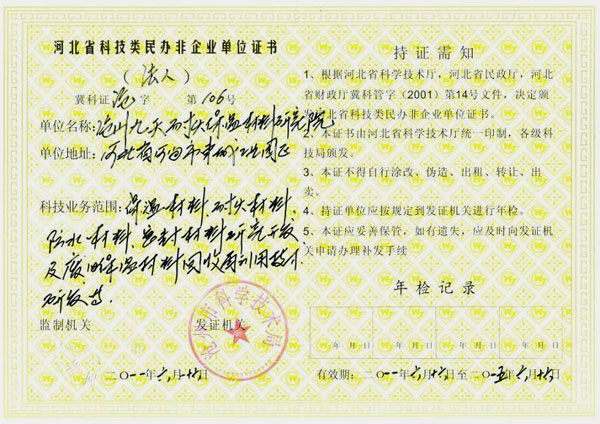 河北省科技类民办非企业单位证书
（法人）
冀科证沧字 第106号
单位名称：沧州九天耐火保温材料研究院
单位地址：河北省河间市
科技业务范围：保温材料、耐火材料、
防水材料、密封材料研究开发
及废旧保温材料回收再利用技术
研发等
监制机关 发证机关
沧州市科学技术局
二〇一一年六月十六日
持证需知
1、根据河北省科学技术厅，河北省民政厅，河北
省财政厅冀科管字（2001）第14号文件，决定颁
发河北省科技类民办非企业单位证书。
2、本证书由河北省科学技术厅统一印制，各级科
技局颁发。
3、本证不得自行涂改、伪造、出租、转让、出
卖。
4、持证单位应按规定到发证机关进行年检。
5、本证应妥善保管，如有遗失，应及时向发证机
关申请办理补发手续
年检记录
年 月 日 年 月 日 年 月 日 年 月 日 年 月 日
有效期：二〇一一年六月十六日至二〇一五年六月十六日